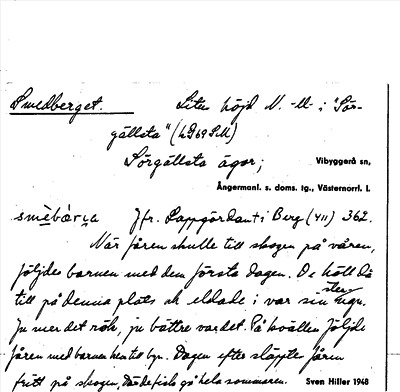 Smedberget. Liten höjd N.-ll- i "Sör-
gällsta" (
Sörgällsta ägor; Vibyggerå sn,
Ångermanl. s. doms. tg., Västernorrl. l.
smèbárja Jfr. Pappgårdant i Berg (411) 362.
När fåren skulle till skogen på våren,
följde barnen med dem första dagen. De höll då
till på denna plats ok eldade i var sin sten ugn.
Ju mer det rök, ju bättre var det. På kvällen följde
fåren med barnen hem till byn. Dagen efter släpptes fåren
fritt på skogen, där de fick gå hela sommaren. Sven Hiller 1948